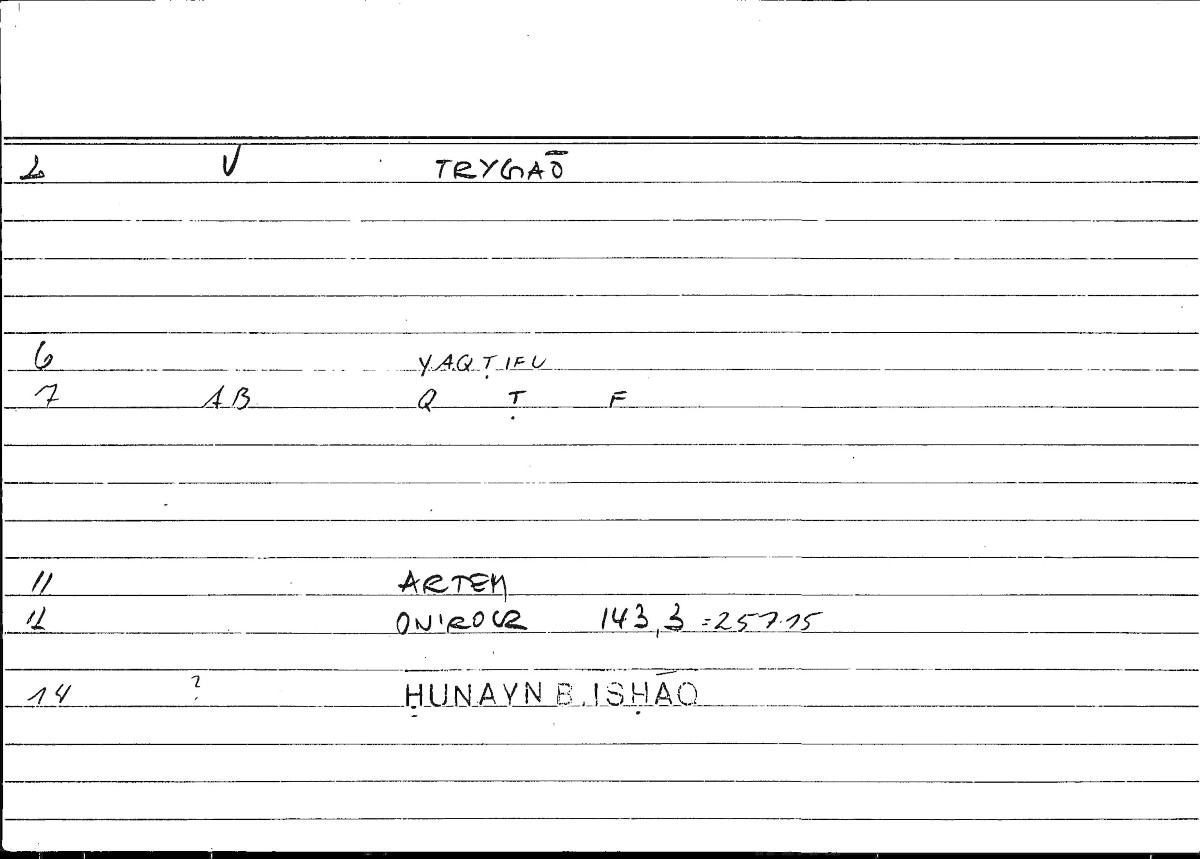 2 V TRYGAŌ
6 YAQṬIFU
7 AB Q Ṭ F
11 ARTEM
12 ONIROCR 143,3 =257.15
14 ? ḤUNAYN B.ISḤĀQ